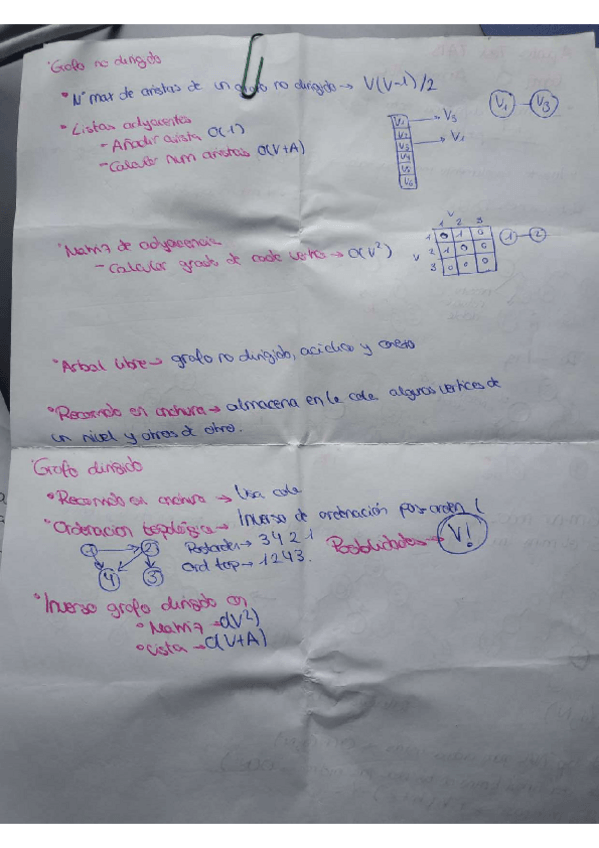 Grafo no dirigido
• Nº max de aristas de un grafo no dirigido → V(V-1)/2
• Listas adyacentes
- Añadir arista O(1)
- Calcular num aristas O(V+A)
V1 → V3
V2
V3 → V1
V4
V5
V6
V1 V3
• Matriz de adyacencia
- Calcular grado de cada vertice → O(V²)
V
1 2 3
V
1 0 1 0
2 1 0 0
3 0 0 0
1 2
• Arbol libre → grafo no dirigido, aciclico y conexo
• Recorrido en anchura → almacena en la cola algunos vertices de
un nivel y otros de otro.
Grafo dirigido
• Recorrido en anchura → Usa cola
• Ordenacion topológica → Inverso de ordenación postorden (
1 2
4 3
Postorden → 3 4 2 1
Ord top → 1 2 4 3.
Posibilidades → V!
• Inverso grafo dirigido en
• Matriz → O(V²)
• Lista → O(V+A)